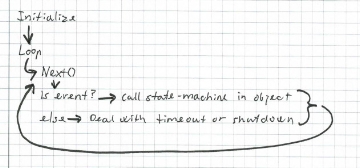 Initialize
Loop
Next()
is event? → call state-machine in object
else → Deal with timeout or shutdown